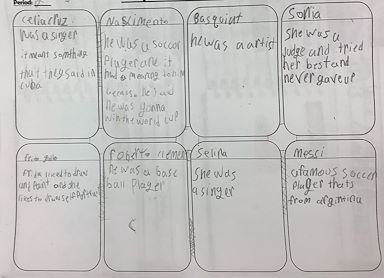 Period:
celiacruz
was a singer
it meant something
that they said in
cuba
Nascimento
he was a soccer
player and it
had a meaning to him
because he said
he was gonna
win the world cup
Basquiat
he was a artist
Sonia
she was a
judge and tried
her best and
never gave up
frida
frida liked to draw
and paint and she
likes to draw self
roberto clement
he was a base
ball player
Selina
she was
a singer
messi
a famous soccer
player thats
from argintina